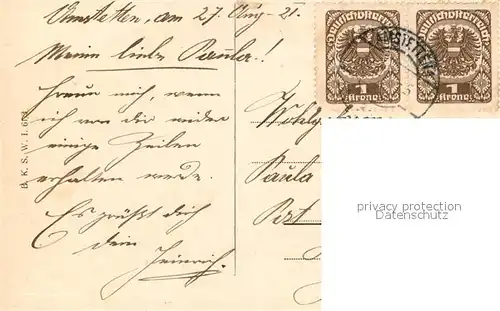 Amstetten, am 27. Aug. 21.
Meine liebe Paula!
Freue mich, wenn
ich von dir wieder
einige Zeilen
erhalten werde.
Es grüßt dich
dein
Heinrich.
B. K. S. W. I.
Deutschösterreich
1
Krone
Deutschösterreich
1
Krone
AMSTETTEN
Paula
privacy protection
Datenschutz